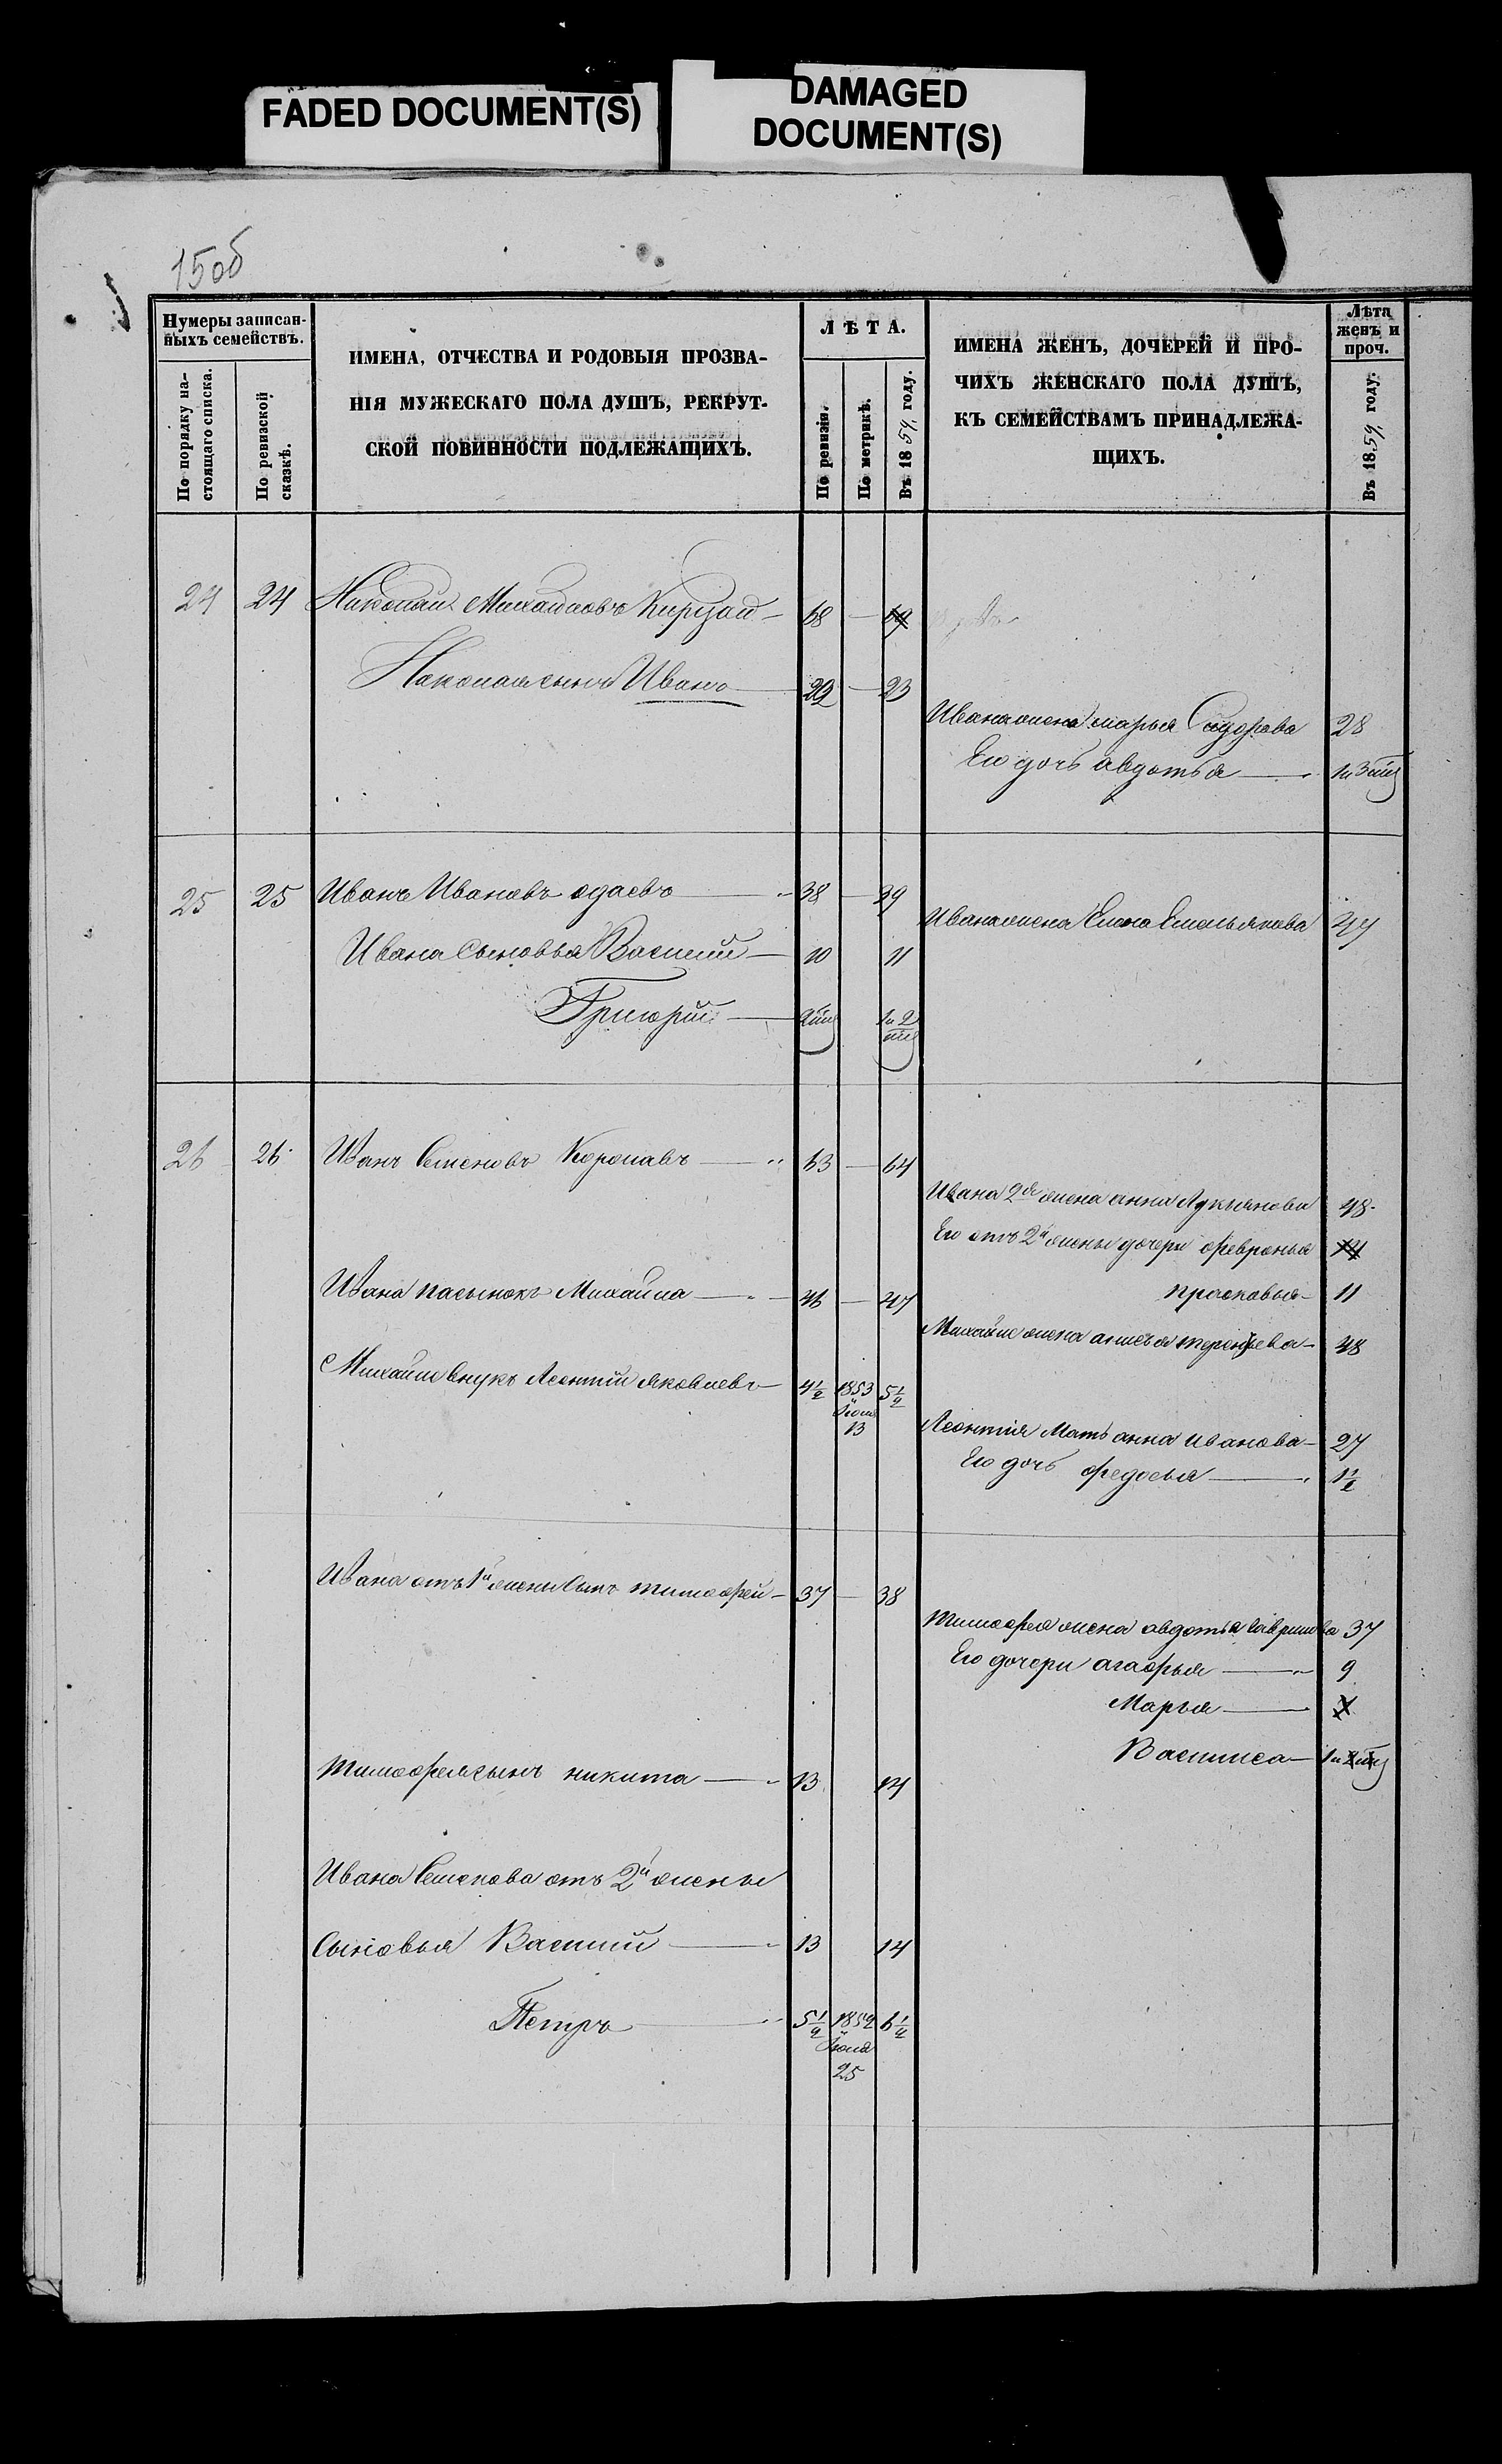 FADED DOCUMENT(S)
DAMAGED
DOCUMENT(S)
15об
Нумеры записан-
ныхъ семействъ.
По порядку на-
стоящаго списка.
По ревизской
сказкѣ.
ИМЕНА, ОТЧЕСТВА И РОДОВЫЯ ПРОЗВА-
НІЯ МУЖЕСКАГО ПОЛА ДУШЪ, РЕКРУТ-
СКОЙ ПОВИННОСТИ ПОДЛЕЖАЩИХЪ.
ЛѢТА.
По ревизіи.
По метрикѣ.
Въ 1859 году.
ИМЕНА ЖЕНЪ, ДОЧЕРЕЙ И ПРО-
ЧИХЪ ЖЕНСКАГО ПОЛА ДУШЪ,
КЪ СЕМЕЙСТВАМЪ ПРИНАДЛЕЖА-
ЩИХЪ.
Лѣта
женъ и
проч.
Въ 1859 году.
24 24 Николай Михайловъ 68 — 69
Николая сынъ Иванъ 22 — 23
Ивана жена марья 28
Его дочь авдотья — 1 и 3 мѣс
25 25 Иванъ Ивановъ — 38 — 39
Ивана жена Елена Емельянова 47
Ивана Сыновья Василий — 10 11
Григорий — 2 мѣс 1 и 2 мѣс
26 26 Иванъ Семеновъ — 63 — 64
Ивана 2я жена анна Лукьянова 48
Его отъ 2й жены дочери февронья
Ивана пасынокъ Михайла — 46 — 47
прасковья — 11
Михайлы жена анисья терентьева — 48
Михайлы внукъ Леонтий яковлевъ 4½ 1853 Июня 13 5½
Леонтия Мать анна иванова — 27
Его дочь федосья — 1½
Ивана отъ 1й жены Сынъ тимофей — 37 — 38
тимофея жена авдотья гаврилова 37
Его дочери агафья — 9
Марья —
Василиса — 1 и
тимофея сынъ никита — 13 14
Ивана Семенова отъ 2й жены
Сыновья Василий — 13 14
Петръ — 5½ 1852 Июня 25 6½